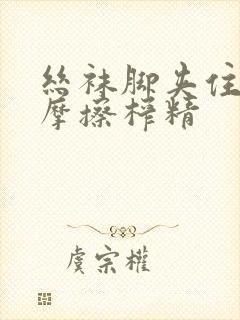 丝袜脚夹住
摩擦榨精
虞宗权